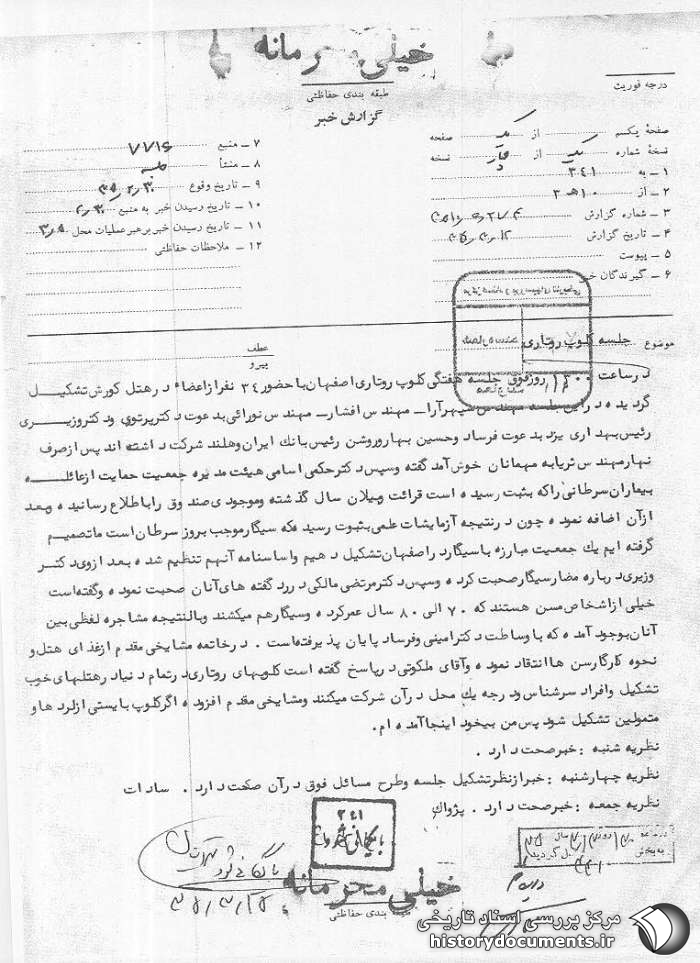 خیلی محرمانه
طبقه بندی حفاظتی
گزارش خبر
درجه فوریت
صفحه یکم از یک صفحه
نسخه شماره یک از چهار نسخه
۱ ـ به ۳۴۱
۲ ـ از ۱۰ هـ ۳
۳ ـ شماره گزارش
۴ ـ تاریخ گزارش
۵ ـ پیوست
۶ ـ گیرندگان خبر
۷ ـ منبع ۷۷۱۶
۸ ـ منشأ جلسه
۹ ـ تاریخ وقوع ۳۵/۲/۳۰
۱۰ ـ تاریخ رسیدن خبر به منبع ۲/۳۰
۱۱ ـ تاریخ رسیدن خبر برهبر عملیات محل
۱۲ ـ ملاحظات حفاظتی
موضوع جلسه کلوپ روتاری
عطف
پیرو
در ساعت ۱۳۰۰ روز فوق جلسه هفتگی کلوپ روتاری اصفهان با حضور ۳۴ نفر از اعضاء در هتل کورش تشکیل
گردیده در این جلسه مهندس سپهرآرا ـ مهندس افشار ـ مهندس نورائی بدعوت دکتر پرتوی و دکتر وزیری
رئیس بهداری یزد بدعوت فرساد و حسین بهار و روشن رئیس بانک ایران و هلند شرکت داشته اند پس از صرف
نهار مهندس ثریا به مهمانان خوش آمد گفته و سپس دکتر حکمی اسامی هیئت مدیره جمعیت حمایت از عائله
بیماران سرطانی را که بثبت رسیده است قرائت و بیلان سال گذشته و موجودی صندوق را باطلاع رسانیده و بعد
از آن اضافه نموده چون در نتیجه آزمایشات علمی بثبوت رسیده که سیگار موجب بروز سرطان است ما تصمیم
گرفته ایم یک جمعیت مبارزه با سیگار در اصفهان تشکیل دهیم و اساسنامه آنهم تنظیم شده بعد از وی دکتر
وزیری درباره مضار سیگار صحبت کرده و سپس دکتر مرتضی مالکی در رد گفته های آنان صحبت نموده و گفته است
خیلی از اشخاص مسن هستند که ۷۰ الی ۸۰ سال عمر کرده و سیگار هم میکشند و بالنتیجه مشاجره لفظی بین
آنان بوجود آمده که با وساطت دکتر امینی و فرساد پایان پذیرفته است . در خاتمه مشایخی مقدم از غذای هتل و
نحوه کار گارسن ها انتقاد نموده و آقای ملکوتی در پاسخ گفته است کلوپهای روتاری در تمام دنیا در هتلهای خوب
تشکیل و افراد سرشناس و درجه یک محل در آن شرکت میکنند و مشایخی مقدم افزوده اگر کلوپ بایستی از لردها و
متمولین تشکیل شود پس من بیخود اینجا آمده ام .
نظریه شنبه : خبر صحت دارد .
نظریه چهارشنبه : خبر از نظر تشکیل جلسه و طرح مسائل فوق در آن صحت دارد . سادات
نظریه جمعه : خبر صحت دارد . پژواک
۳۴۱
بایگانی شود
خیلی محرمانه
طبقه بندی حفاظتی
مرکز بررسی اسناد تاریخی
historydocuments.ir